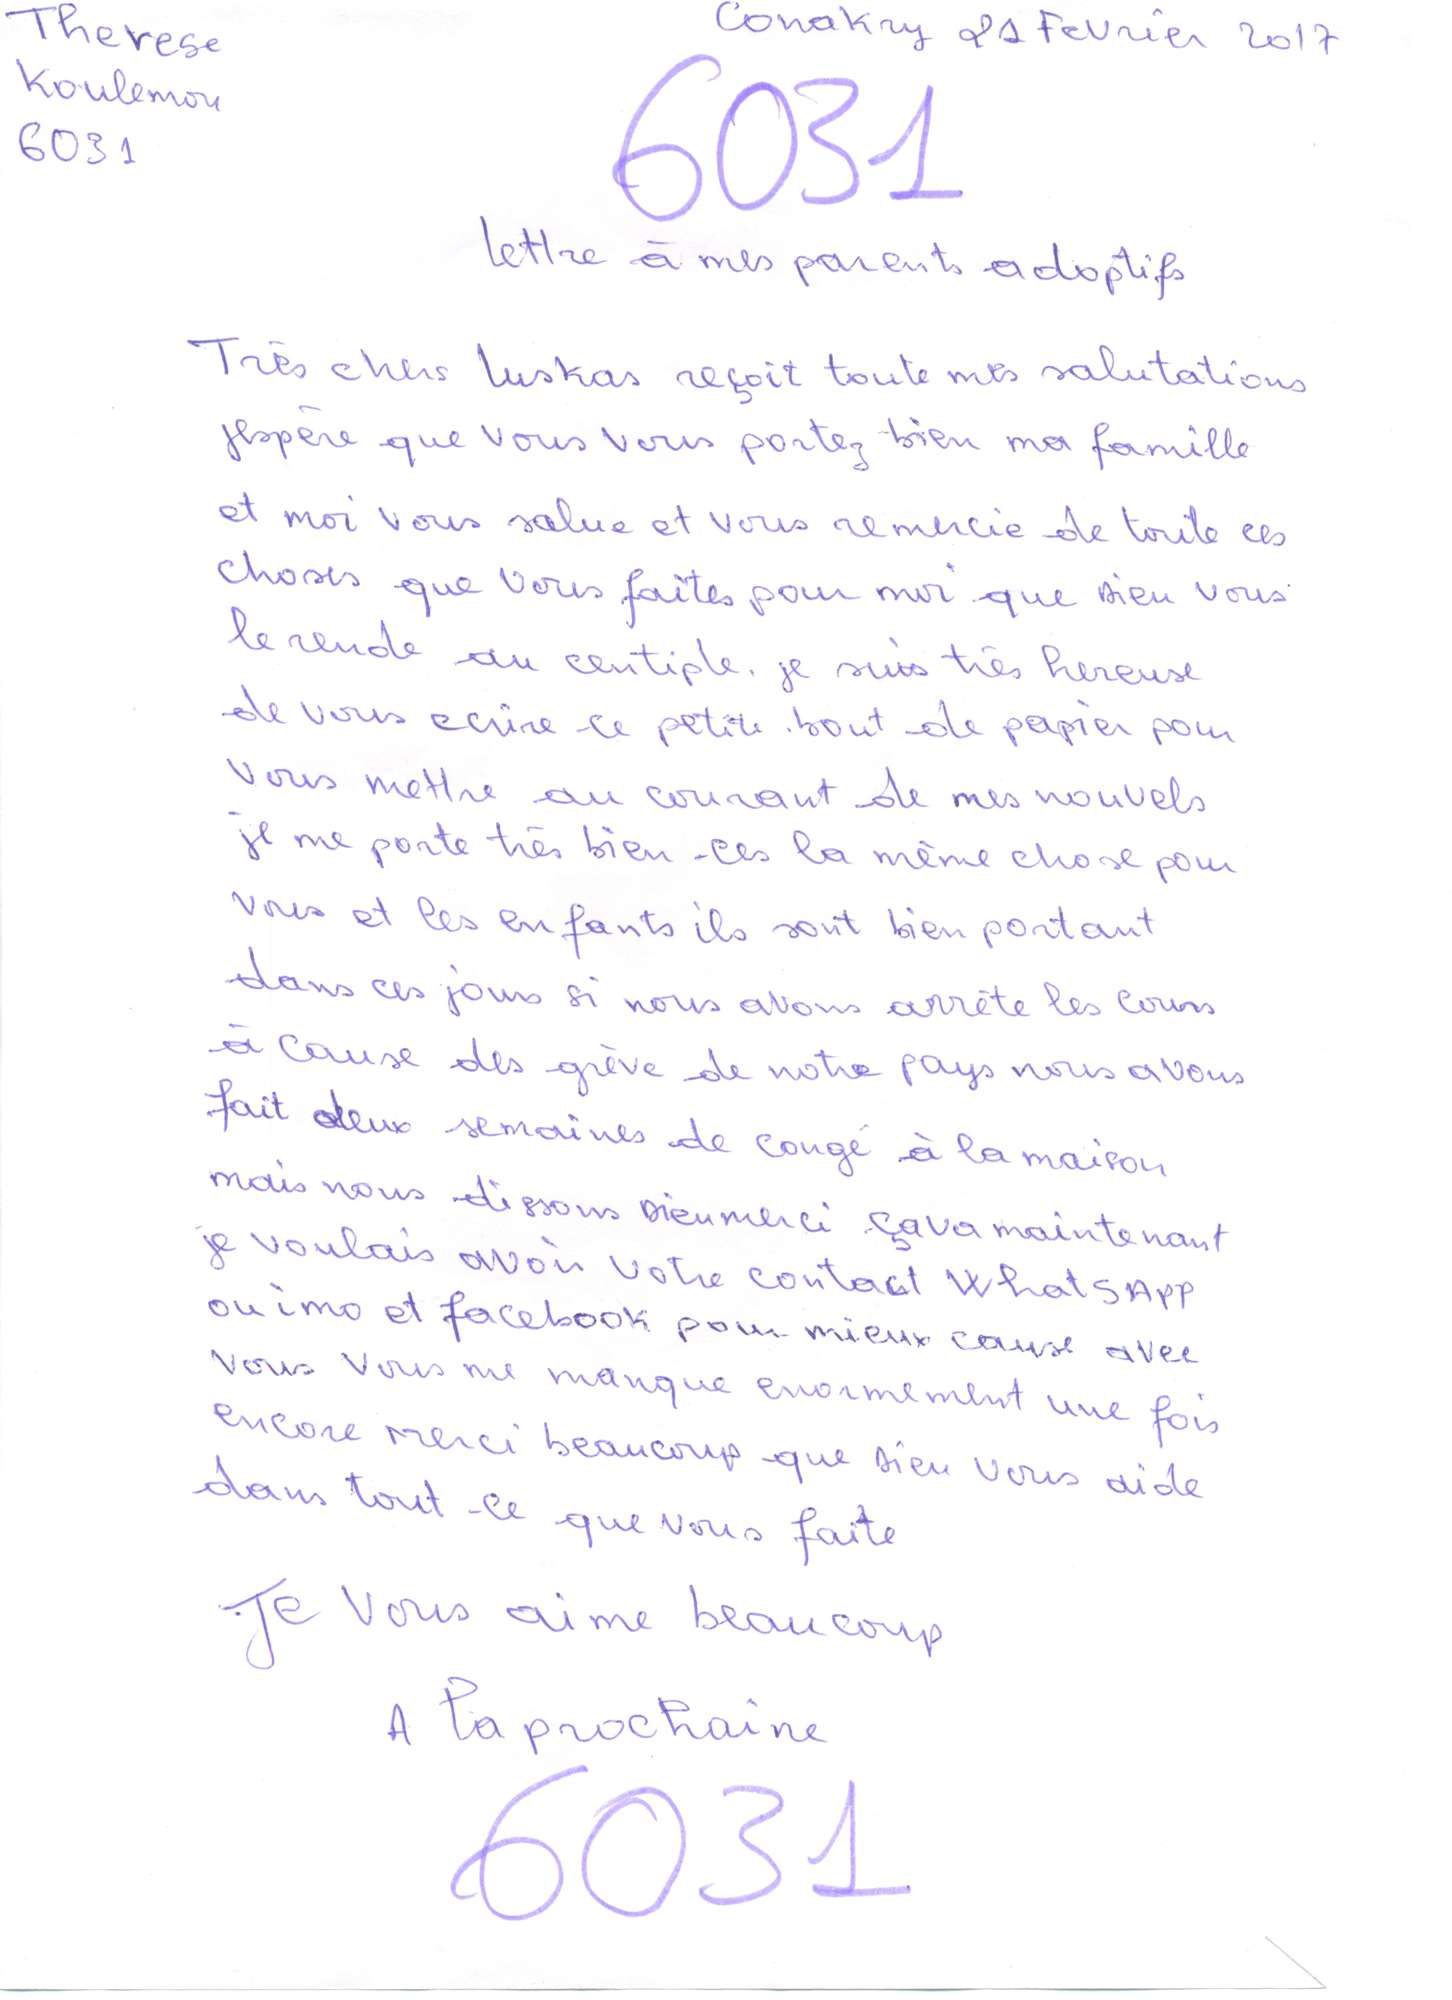 Therese
Koulemou
6031
Conakry 21 Fevrier 2017
6031
lettre à mes parents adoptifs
Très chers luskas reçoit toute mes salutations
jespère que vous vous portez bien ma famille
et moi vous salue et vous remercie de toute ces
choses que vous faites pour moi que Dieu vous
le rende au centiple. je suis très hereuse
de vous ecrire ce petite bout de papier pour
vous mettre au courant de mes nouvels
je me porte très bien ces la même chose pour
vous et les enfants ils sont bien portant
dans ces jours si nous avons arrête les cours
à cause des grève de notre pays nous avons
fait deux semaines de congé à la maison
mais nous dissons Dieu merci çava maintenant
je voulais avoir votre contact WhatSApp
ou imo et facebook pour mieux cause avec
vous vous me manque enormement une fois
encore Merci beaucoup que Dieu vous aide
dans tout ce que vous faite
Je vous aime beaucoup
A la prochaine
6031